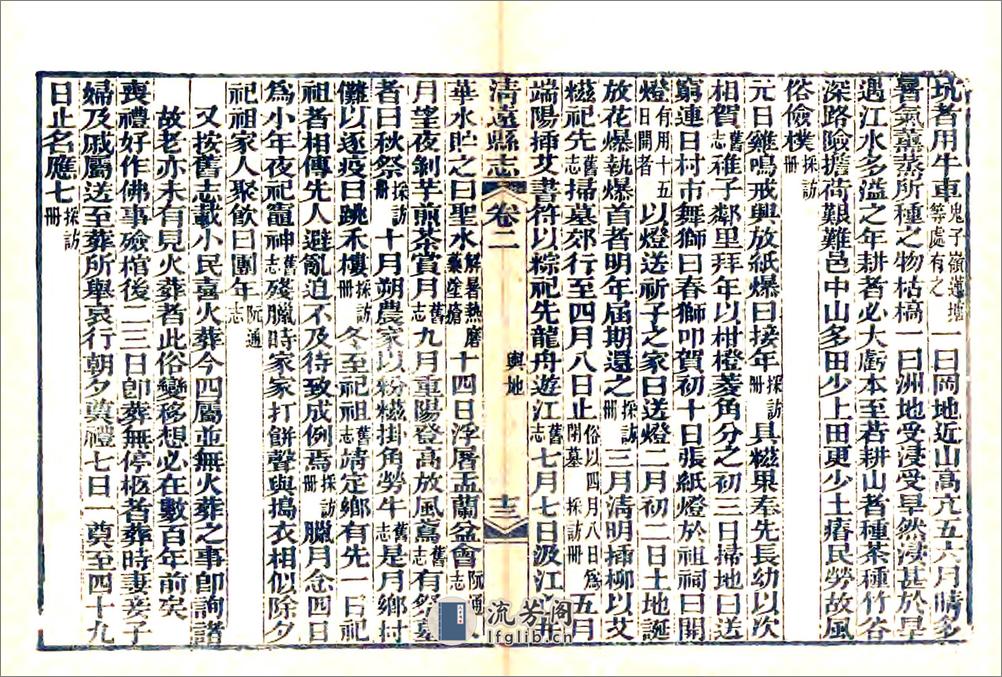 坑者用牛車鬼子嶺蓮塘等處有之一曰岡地近山高亢五六月晴多
暑氣熏蒸所種之物枯槁一曰洲地受浸受旱然浸甚於旱
遇江水多溢之年耕者必大虧本至若耕山者種茶種竹谷
深路險擔荷艱難邑中山多田少上田更少土瘠民勞故風
俗儉樸採訪冊
元日雞鳴戒興放紙爆曰接年採訪冊具糍果奉先長幼以次
相賀舊志稚子鄰里拜年以柑橙菱角分之初三日掃地曰送
窮連日村市舞獅曰春獅叩賀初十日張紙燈於祖祠曰開
燈有用十五日開者以燈送祈子之家曰送燈二月初二日土地誕
放花爆執爆首者明年屆期還之採訪冊三月清明插柳以艾
糍祀先舊志掃墓郊行至四月八日止俗以四月八日為閉墓採訪冊五月
端陽插艾書符以粽祀先龍舟遊江舊志七月七日汲江
清遠縣志
卷二
輿地
十三
華水貯之曰聖水解暑熱磨藥塗瘡十四日浮屠盂蘭盆會阮通志
月望夜剝芋煎茶賞月舊志九月重陽登高放風鳶舊志有祭墓
者曰秋祭採訪冊十月朔農家以粉糍掛角勞牛舊志是月鄉村
儺以逐疫曰跳禾樓採訪冊冬至祀祖舊志靖定鄉有先一日祀
祖者相傳先人避亂迫不及待致成例焉採訪冊臘月念四日
為小年夜祀竈神舊志殘臘時家家打餅聲與搗衣相似除夕
祀祖家人聚飲曰團年阮通志
又按舊志載小民喜火葬今四屬並無火葬之事卽詢諸
故老亦未有見火葬者此俗變移想必在數百年前矣
喪禮好作佛事殮棺後二三日卽葬無停柩者葬時妻妾子
婦及戚屬送至葬所舉哀行朝夕奠禮七日一奠至四十九
日止名應七採訪冊
流芳阁
lfglib.cn